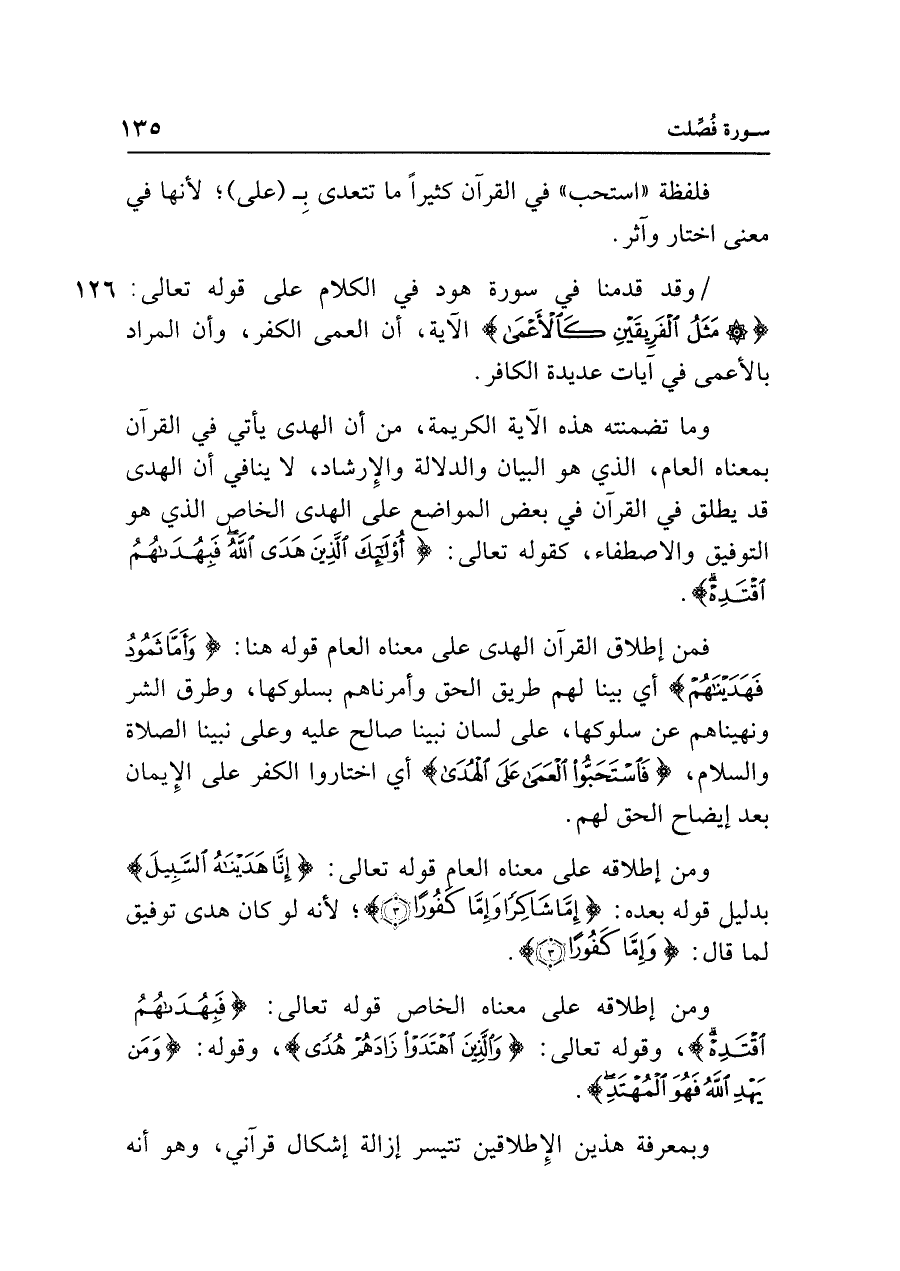 سورة فُصِّلت ١٣٥
فلفظة «استحب» في القرآن كثيراً ما تتعدى بِـ (على)؛ لأنها في
معنى اختار وآثر.
/وقد قدمنا في سورة هود في الكلام على قوله تعالى: ١٢٦
﴿۞ مَثَلُ ٱلْفَرِيقَيْنِ كَٱلْأَعْمَىٰ﴾ الآية، أن العمى الكفر، وأن المراد
بالأعمى في آيات عديدة الكافر.
وما تضمنته هذه الآية الكريمة، من أن الهدى يأتي في القرآن
بمعناه العام، الذي هو البيان والدلالة والإِرشاد، لا ينافي أن الهدى
قد يطلق في القرآن في بعض المواضع على الهدى الخاص الذي هو
التوفيق والاصطفاء، كقوله تعالى: ﴿أُوْلَٰٓئِكَ ٱلَّذِينَ هَدَى ٱللَّهُۖ فَبِهُدَىٰهُمُ
ٱقْتَدِهْۗ﴾.
فمن إطلاق القرآن الهدى على معناه العام قوله هنا: ﴿وَأَمَّا ثَمُودُ
فَهَدَيْنَٰهُمْ﴾ أي بينا لهم طريق الحق وأمرناهم بسلوكها، وطرق الشر
ونهيناهم عن سلوكها، على لسان نبينا صالح عليه وعلى نبينا الصلاة
والسلام، ﴿فَٱسْتَحَبُّواْ ٱلْعَمَىٰ عَلَى ٱلْهُدَىٰ﴾ أي اختاروا الكفر على الإِيمان
بعد إيضاح الحق لهم.
ومن إطلاقه على معناه العام قوله تعالى: ﴿إِنَّا هَدَيْنَٰهُ ٱلسَّبِيلَ﴾
بدليل قوله بعده: ﴿إِمَّا شَاكِرًا وَإِمَّا كَفُورًا ٣﴾؛ لأنه لو كان هدى توفيق
لما قال: ﴿وَإِمَّا كَفُورًا ٣﴾.
ومن إطلاقه على معناه الخاص قوله تعالى: ﴿فَبِهُدَىٰهُمُ
ٱقْتَدِهْۗ﴾، وقوله تعالى: ﴿وَٱلَّذِينَ ٱهْتَدَوْاْ زَادَهُمْ هُدًى﴾، وقوله: ﴿وَمَن
يَهْدِ ٱللَّهُ فَهُوَ ٱلْمُهْتَدِۖ﴾.
وبمعرفة هذين الإِطلاقين تتيسر إزالة إشكال قرآني، وهو أنه